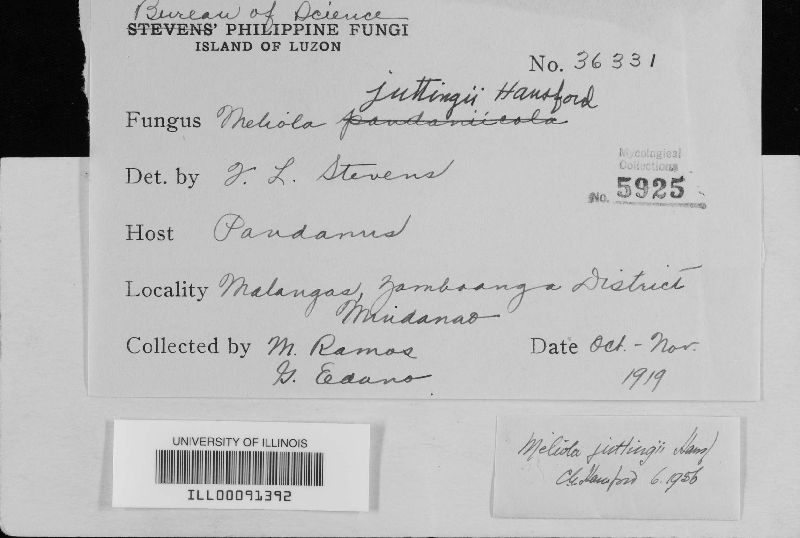 Bureau of Science
STEVENS' PHILIPPINE FUNGI
ISLAND OF LUZON
No. 36331
juttingii Hansford
Fungus Meliola pandaniicola
Mycological
Collections
Det. by F. L. Stevens
No. 5925
Host Pandanus
Locality Malangas, Zamboanga District
Mindanao
Collected by M. Ramos
Date Oct. - Nov.
G. Edano
1919
UNIVERSITY OF ILLINOIS
ILL00091392
Meliola juttingii Hansf
C.G. Hansford 6.1956